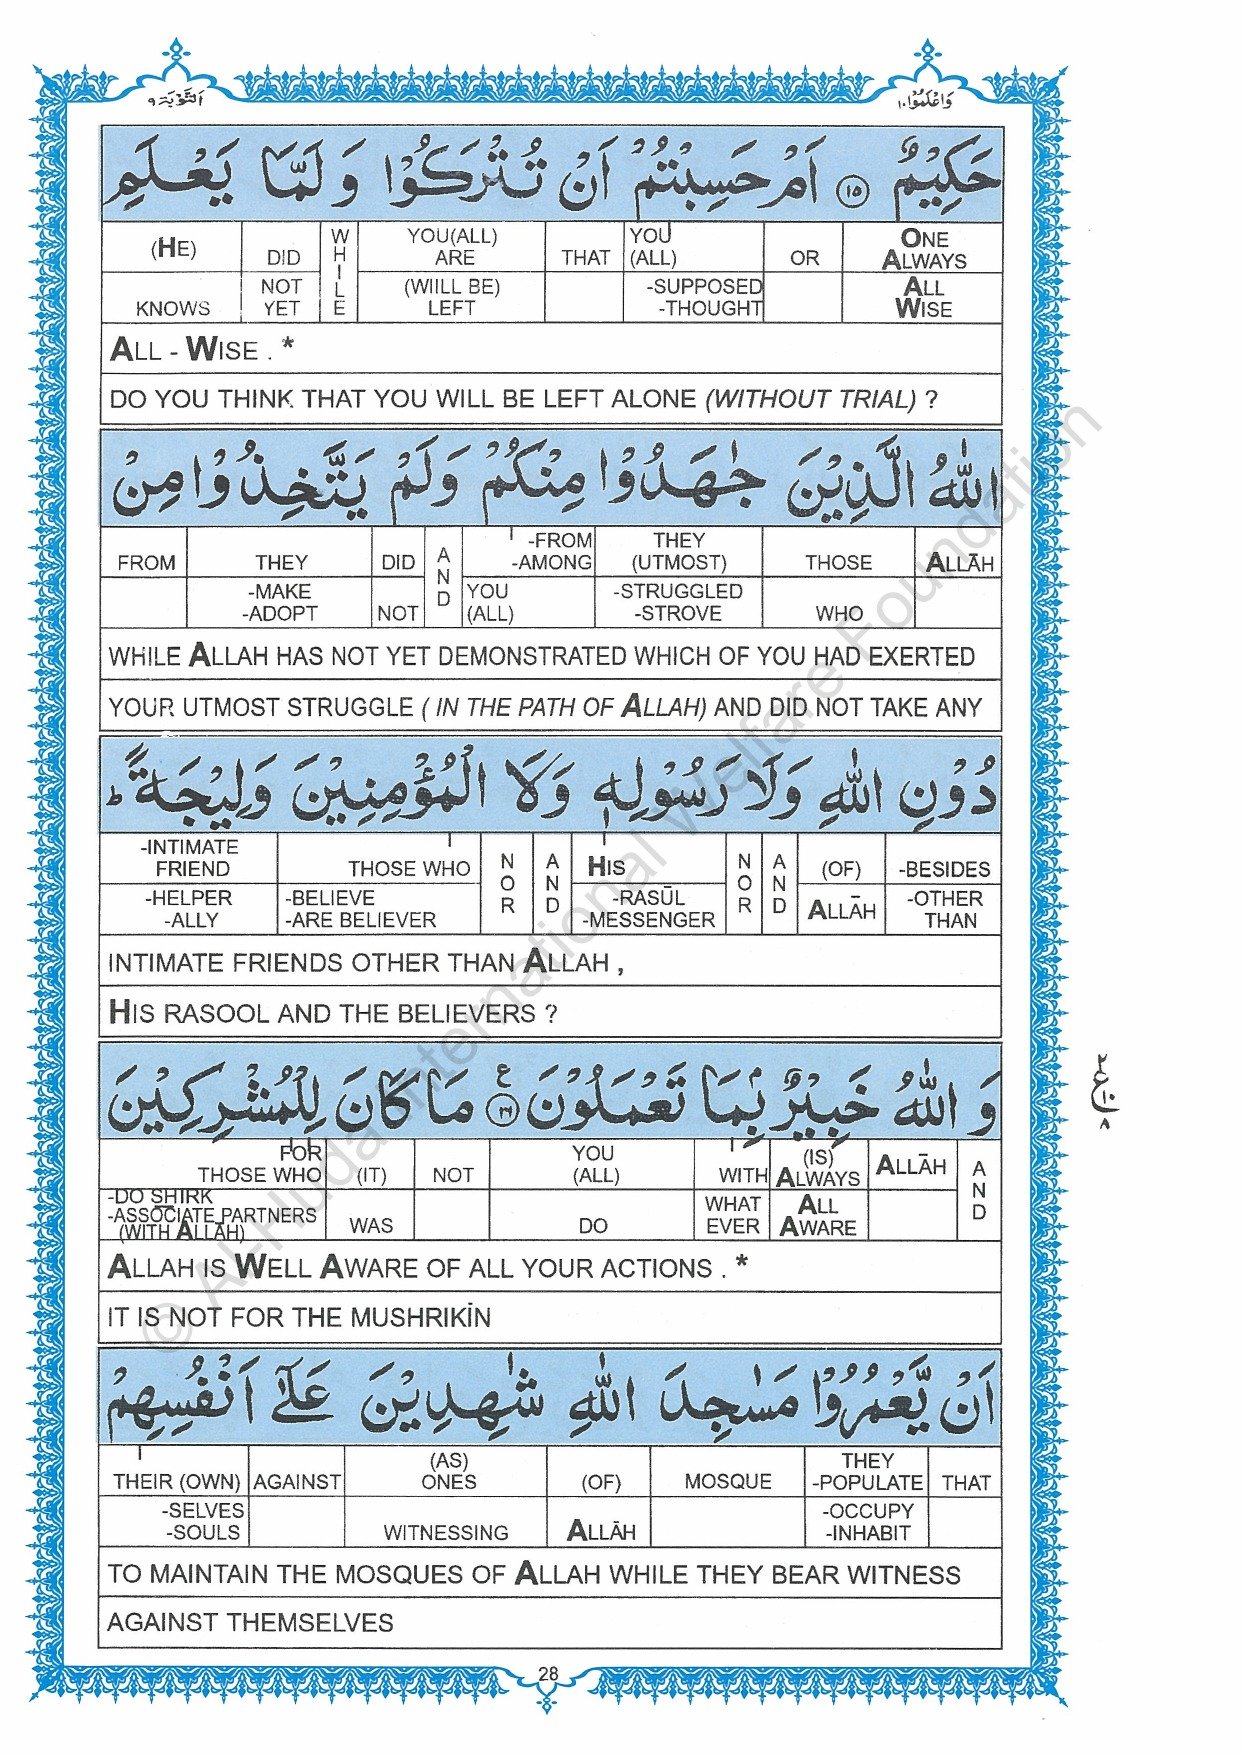 وَاعْلَمُوْٓا ١٠
اَلتَّوْبَة ٩
حَكِيْمٌ ١٥ اَمْ حَسِبْتُمْ اَنْ تُتْرَكُوْا وَ لَمَّا يَعْلَمِ
ONE ALWAYS ALL WISE | OR | YOU (ALL) -SUPPOSED -THOUGHT | THAT | YOU(ALL) ARE (WIILL BE) LEFT | WHILE | DID NOT YET | (HE) KNOWS
ALL - WISE . *
DO YOU THINK THAT YOU WILL BE LEFT ALONE (WITHOUT TRIAL) ?
اللّٰهُ الَّذِيْنَ جٰهَدُوْا مِنْكُمْ وَلَمْ يَتَّخِذُوْا مِنْ
ALLĀH | THOSE WHO | THEY (UTMOST) -STRUGGLED -STROVE | -FROM -AMONG YOU (ALL) | AND | DID NOT | THEY -MAKE -ADOPT | FROM
WHILE ALLAH HAS NOT YET DEMONSTRATED WHICH OF YOU HAD EXERTED
YOUR UTMOST STRUGGLE ( IN THE PATH OF ALLAH) AND DID NOT TAKE ANY
دُوْنِ اللّٰهِ وَلَا رَسُوْلِهٖ وَلَا الْمُؤْمِنِيْنَ وَلِيْجَةً ؕ
-BESIDES -OTHER THAN | (OF) ALLĀH | AND | NOR | HIS -RASŪL -MESSENGER | AND | NOR | THOSE WHO -BELIEVE -ARE BELIEVER | -INTIMATE FRIEND -HELPER -ALLY
INTIMATE FRIENDS OTHER THAN ALLAH ,
HIS RASOOL AND THE BELIEVERS ?
وَ اللّٰهُ خَبِيْرٌۢ بِمَا تَعْمَلُوْنَ ١٦ ع مَا كَانَ لِلْمُشْرِكِيْنَ
٢ ع ١٠ ٨
AND | ALLĀH | (IS) ALWAYS ALL AWARE | WITH WHAT EVER | YOU (ALL) DO | NOT | (IT) WAS | FOR THOSE WHO -DO SHIRK -ASSOCIATE PARTNERS (WITH ALLĀH)
ALLAH IS WELL AWARE OF ALL YOUR ACTIONS . *
IT IS NOT FOR THE MUSHRIKĪN
اَنْ يَّعْمُرُوْا مَسٰجِدَ اللّٰهِ شٰهِدِيْنَ عَلٰٓى اَنْفُسِهِمْ
THAT | THEY -POPULATE -OCCUPY -INHABIT | MOSQUE | (OF) ALLĀH | (AS) ONES WITNESSING | AGAINST | THEIR (OWN) -SELVES -SOULS
TO MAINTAIN THE MOSQUES OF ALLAH WHILE THEY BEAR WITNESS
AGAINST THEMSELVES
28
© Al-Huda International Welfare Foundation